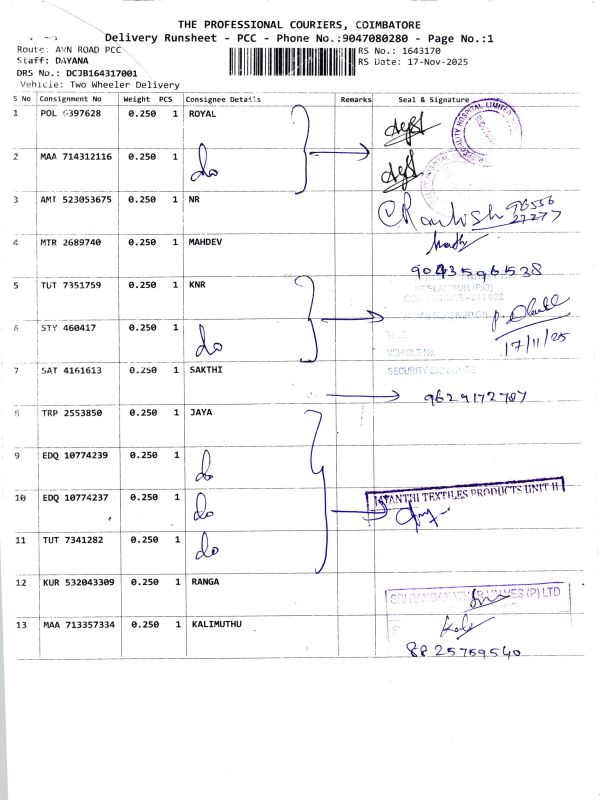 THE PROFESSIONAL COURIERS, COIMBATORE
Delivery Runsheet - PCC - Phone No.:9047080280 - Page No.:1
Route: AVN ROAD PCC
RS No.: 1643170
Staff: DAYANA
RS Date: 17-Nov-2025
DRS No.: DCJB164317001
Vehicle: Two Wheeler Delivery
S No Consignment No Weight PCS Consignee Details Remarks Seal & Signature
1 POL 6397628 0.250 1 ROYAL
2 MAA 714312116 0.250 1 do
3 AMT 523053675 0.250 1 NR
96556
27277
4 MTR 2689740 0.250 1 MAHDEV
9043596538
5 TUT 7351759 0.250 1 KNR
6 STY 460417 0.250 1 do
17/11/25
VEHICLE No.
7 SAT 4161613 0.250 1 SAKTHI
9629172707
8 TRP 2553850 0.250 1 JAYA
9 EDQ 10774239 0.250 1 do
10 EDQ 10774237 0.250 1 do
JAYANTHI TEXTILES PRODUCTS UNIT-II
11 TUT 7341282 0.250 1 do
12 KUR 532043309 0.250 1 RANGA
13 MAA 713357334 0.250 1 KALIMUTHU
8825759540